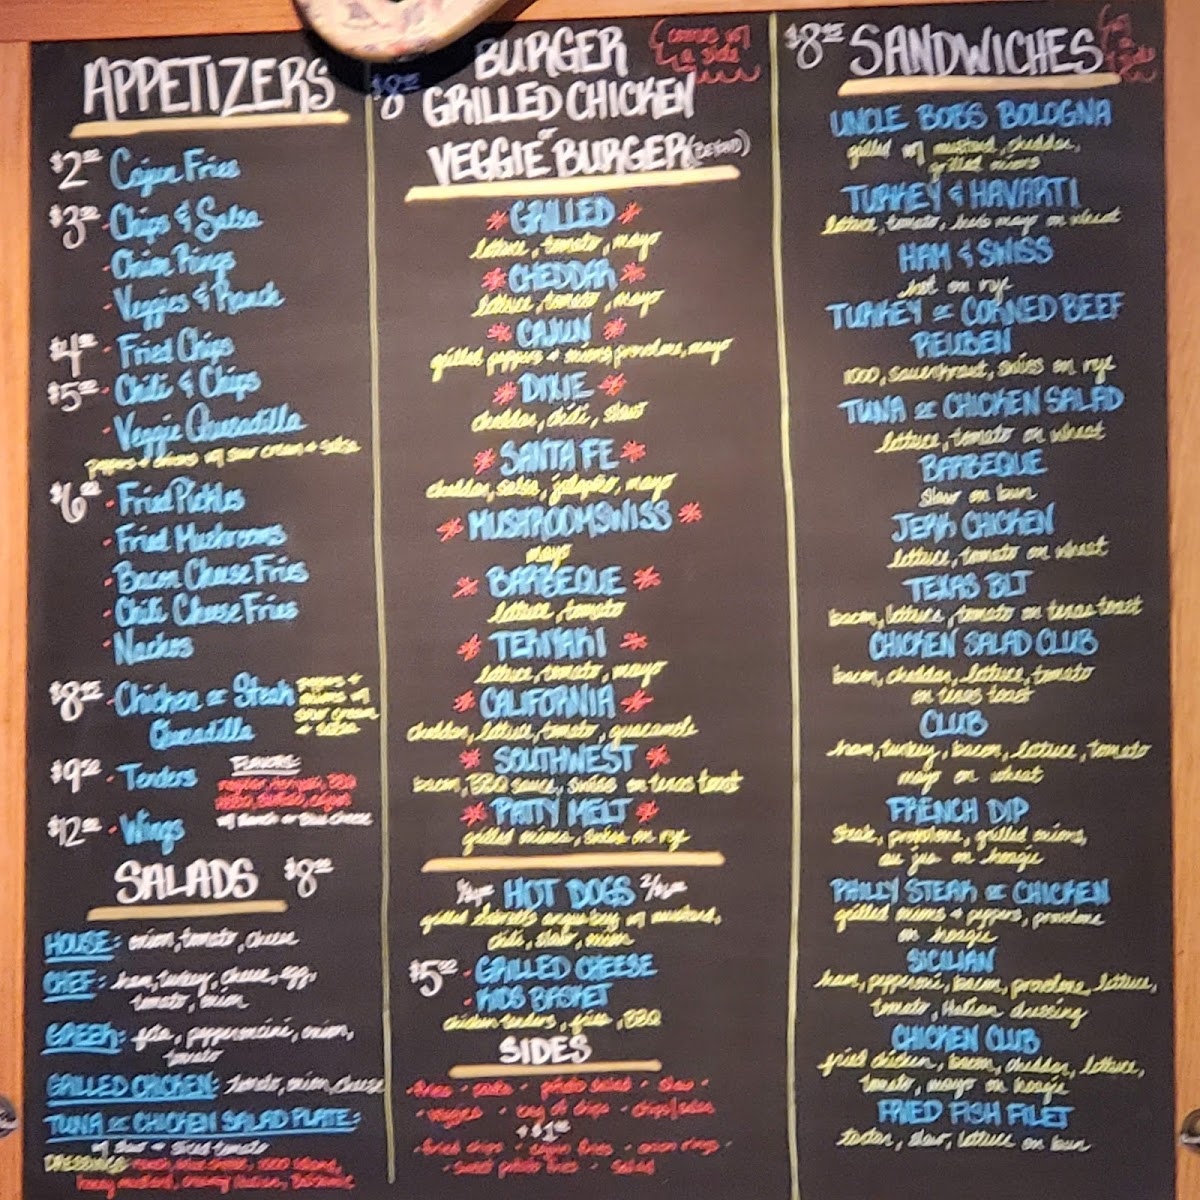 APPETIZERS
$2.00 Cajun Fries
$3.00 · Chips & Salsa
· Onion Rings
· Veggies & Ranch
$4.00 · Fried Chips
$5.00 · Chili & Chips
· Veggie Quesadilla
peppers + onions w/ sour cream + salsa
$6.00 · Fried Pickles
· Fried Mushrooms
· Bacon Cheese Fries
· Chili Cheese Fries
· Nachos
$8.00 · Chicken or Steak
Quesadilla
peppers +
onions w/
sour cream
+ salsa
$9.00 · Tenders
FLAVORS:
w/ Ranch or Bleu Cheese
$12.00 · Wings
SALADS $8.00
HOUSE: onion, tomato, cheese
CHEF: ham, turkey, cheese, egg,
tomato, onion
GREEK: feta, pepperoncini, onion,
tomato
GRILLED CHICKEN: tomato, onion, cheese
TUNA OR CHICKEN SALAD PLATE:
w/ slaw + sliced tomato
DRESSINGS: ranch, bleu cheese, 1000 island,
honey mustard, creamy Italian, balsamic
$8.00 BURGER
GRILLED CHICKEN
or
VEGGIE BURGER (BEYOND)
comes w/
a side
* GRILLED *
lettuce, tomato, mayo
* CHEDDAR *
lettuce, tomato, mayo
* CAJUN *
grilled peppers + onions, provolone, mayo
* DIXIE *
cheddar, chili, slaw
* SANTA FE *
cheddar, salsa, jalapeño, mayo
* MUSHROOM SWISS *
mayo
* BARBEQUE *
lettuce, tomato
* TERIYAKI *
lettuce, tomato, mayo
* CALIFORNIA *
cheddar, lettuce, tomato, guacamole
* SOUTHWEST *
bacon, BBQ sauce, swiss on texas toast
* PATTY MELT *
grilled onions, swiss on rye
HOT DOGS
mustard,
chili, slaw, onion
$5.00 · GRILLED CHEESE
· KIDS BASKET
chicken tenders, fries, BBQ
SIDES
· fries · salad · potato salad · slaw ·
· veggies · bag of chips · chips/salsa
+ $1.00
· fried chips · cajun fries · onion rings ·
· sweet potato fries · salad
$8.00 SANDWICHES
w/
a
side
UNCLE BOB'S BOLOGNA
grilled w/ mustard, cheddar,
grilled onions
TURKEY & HAVARTI
lettuce, tomato, mayo on wheat
HAM & SWISS
hot on rye
TURKEY OR CORNED BEEF
REUBEN
1000, sauerkraut, swiss on rye
TUNA OR CHICKEN SALAD
lettuce, tomato on wheat
BARBEQUE
slaw on bun
JERK CHICKEN
lettuce, tomato on wheat
TEXAS BLT
bacon, lettuce, tomato on texas toast
CHICKEN SALAD CLUB
bacon, cheddar, lettuce, tomato
on texas toast
CLUB
ham, turkey, bacon, lettuce, tomato
mayo on wheat
FRENCH DIP
steak, provolone, grilled onions,
au jus on hoagie
PHILLY STEAK OR CHICKEN
grilled onions + peppers, provolone
on hoagie
SICILIAN
ham, pepperoni, bacon, provolone, lettuce,
tomato, Italian dressing
CHICKEN CLUB
fried chicken, bacon, cheddar, lettuce,
tomato, mayo on hoagie
FRIED FISH FILET
tartar, slaw, lettuce on bun